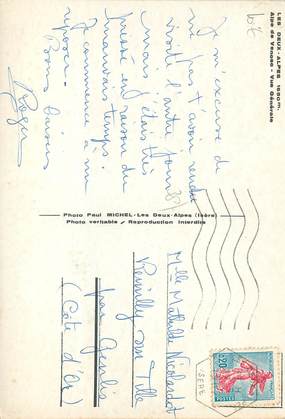 LES DEUX-ALPES 1650 m.
Alpe de Venosc - Vue Générale
107
Je m'excuse de
ne pas t'avoir rendu
visite l'autre jour
mais j'étais très
pressé en raison du
mauvais temps.
Je commence à me
reposer.
Bons baisers
Roger
Photo Paul MICHEL - Les Deux-Alpes (Isère)
Photo véritable - Reproduction Interdite
38
Mlle Mathilde Nicolardot
Remilly sur Tille
par Genlis
(Côte d'Or)
ISERE
0,20
POSTES